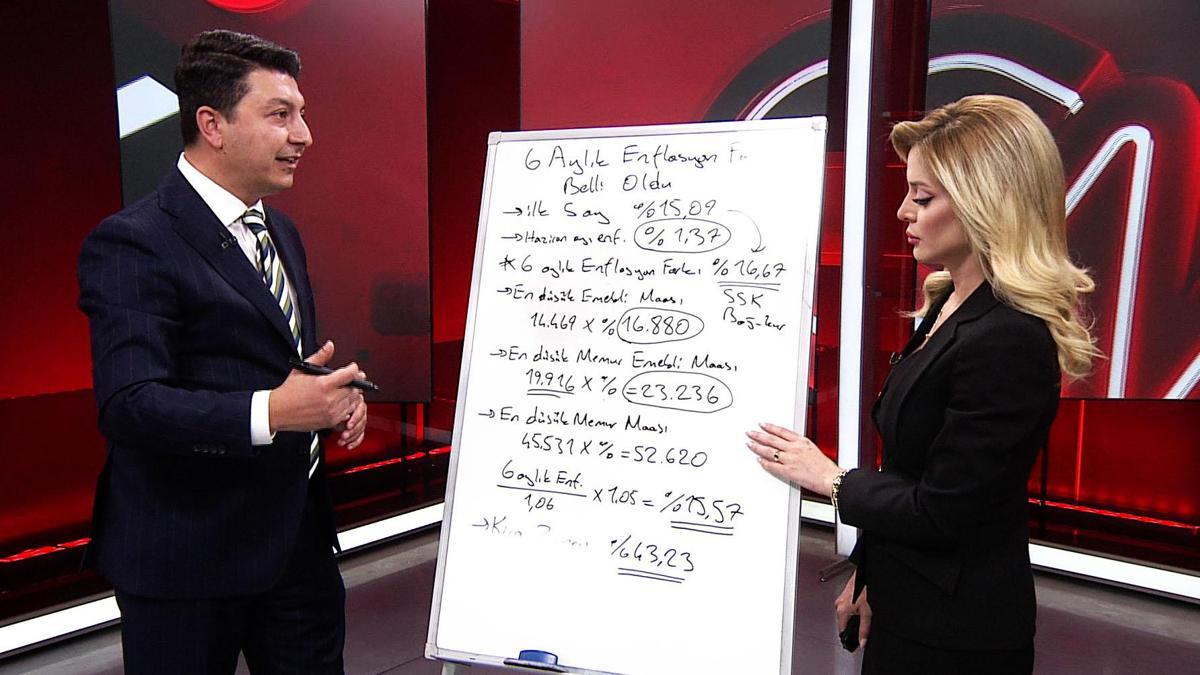 6 Aylık Enflasyon
Belli Oldu
→ ilk 5 ay %15,09
→ Haziran ayı enf. %1,37
* 6 aylık Enflasyon Farkı %16,67
→ En düşük Emekli Maaşı SSK
14.469 x % 16.880 Bağ-kur
→ En düşük Memur Emekli Maaşı
19.916 x % = 23.236
→ En düşük Memur Maaşı
45.531 x % = 52.620
6 aylık Enf.
1,06 x 1.05 = %15,57
→ %43,23